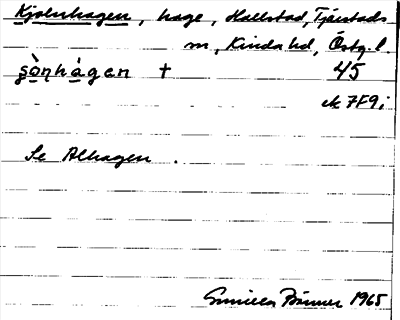 Kjolnhagen, hage, Hallstad, Tjärstads
sn, Kinda hd, Östg. l.
şònhàgen + 45
ek 7F9i
Se Alhagen.
Gunilla Bönner 1965